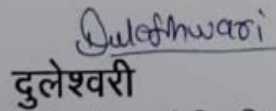 Duleshwari
दुलेश्वरी